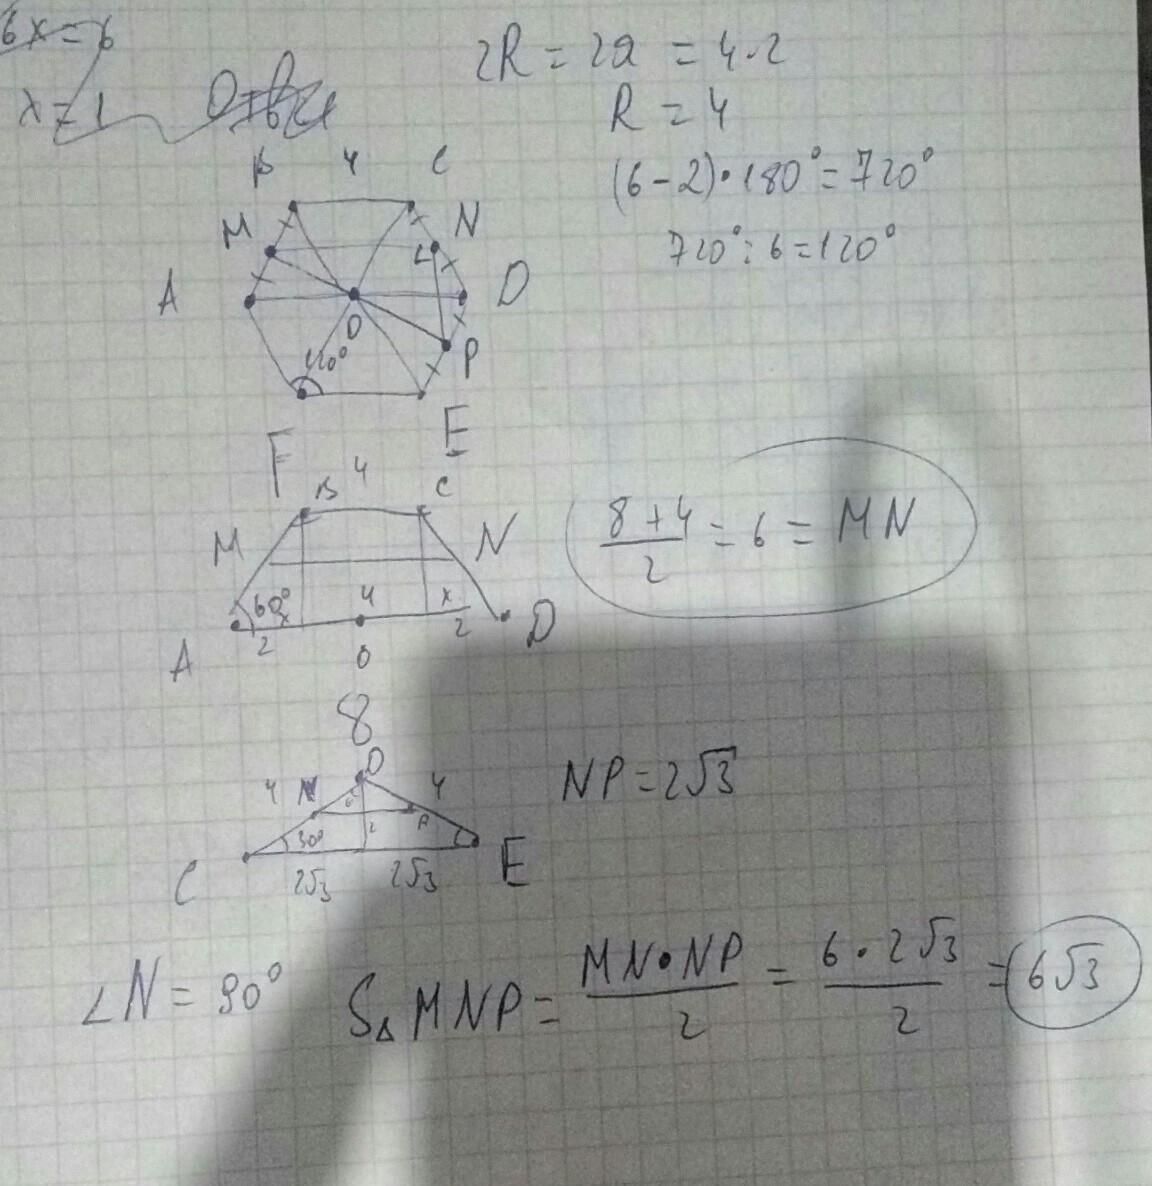 6x=6
x=1
2R = 2a = 4·2
R = 4
(6-2)·180°=720°
720°:6=120°
B 4 C
M N
A D
O
120° P
F E
4
B C
M N
60° 4 x
A 2 O 2 D
8
(8+4)/2 = 6 = MN
O
4 N 4
30° 2 P
C 2√3 2√3 E
NP=2√3
∠N = 90° S△MNP = (MN·NP)/2 = (6·2√3)/2 = 6√3